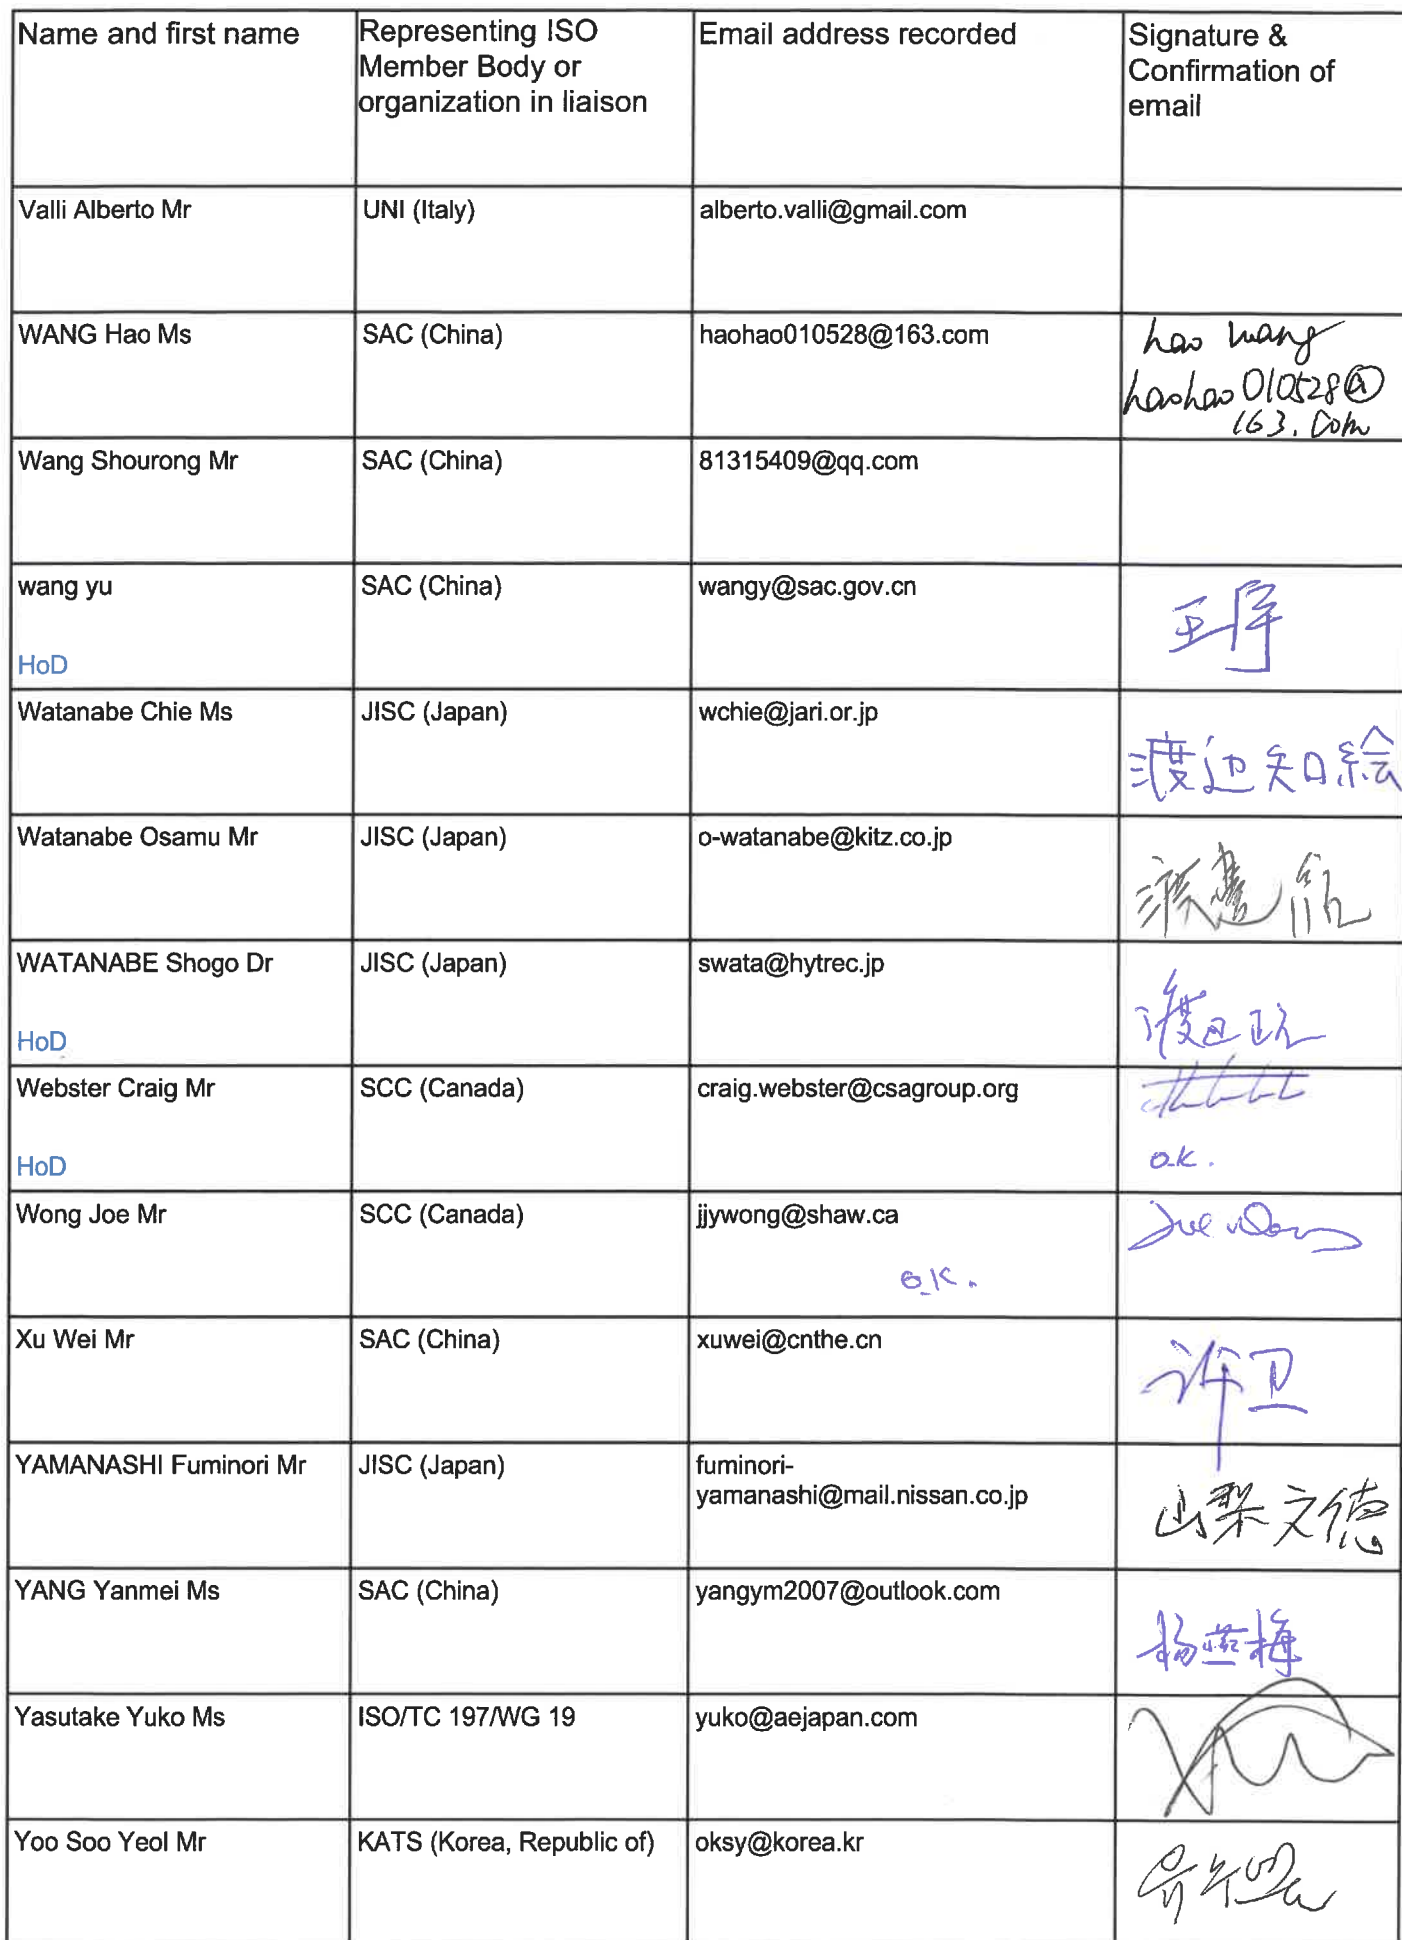 Name and first name
Representing ISO
Member Body or
organization in liaison
Email address recorded
Signature &
Confirmation of
email
Valli Alberto Mr
UNI (Italy)
alberto.valli@gmail.com
WANG Hao Ms
SAC (China)
haohao010528@163.com
hao wang
haohao010528@
163.com
Wang Shourong Mr
SAC (China)
81315409@qq.com
wang yu
HoD
SAC (China)
wangy@sac.gov.cn
Watanabe Chie Ms
JISC (Japan)
wchie@jari.or.jp
渡辺知絵
Watanabe Osamu Mr
JISC (Japan)
o-watanabe@kitz.co.jp
WATANABE Shogo Dr
HoD
JISC (Japan)
swata@hytrec.jp
Webster Craig Mr
HoD
SCC (Canada)
craig.webster@csagroup.org
o.k.
Wong Joe Mr
SCC (Canada)
jjywong@shaw.ca
o.k.
Joe Wong
Xu Wei Mr
SAC (China)
xuwei@cnthe.cn
许卫
YAMANASHI Fuminori Mr
JISC (Japan)
fuminori-
yamanashi@mail.nissan.co.jp
山梨文徳
YANG Yanmei Ms
SAC (China)
yangym2007@outlook.com
杨燕梅
Yasutake Yuko Ms
ISO/TC 197/WG 19
yuko@aejapan.com
Yoo Soo Yeol Mr
KATS (Korea, Republic of)
oksy@korea.kr
유수열